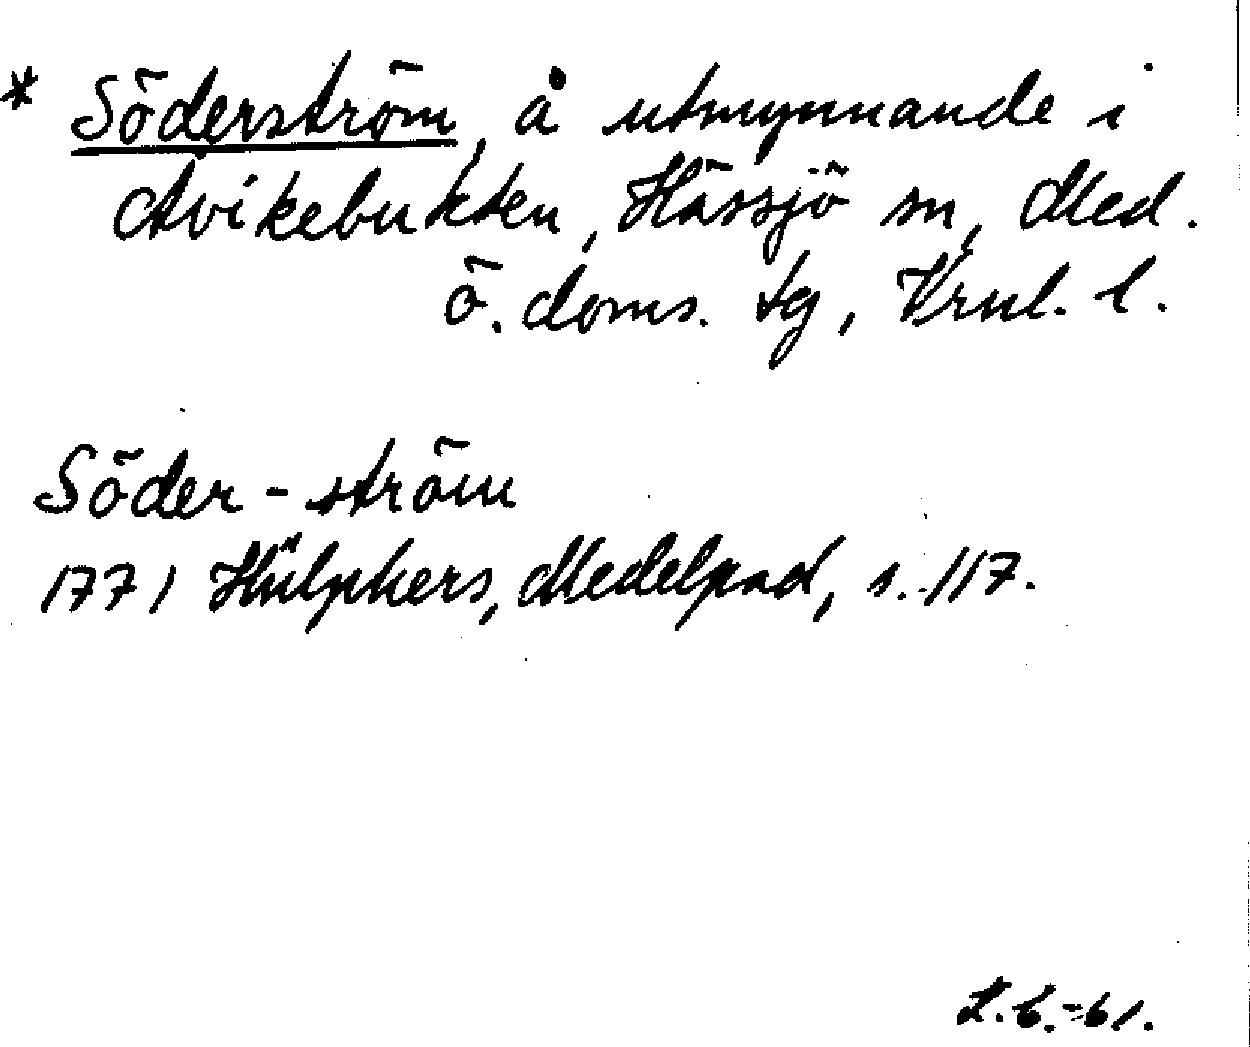 * Söderström, å utmynnande i
Åvikebukten, Hässjö sn, Med.
ö. doms. tg, Vrnl. l.
Söder-ström
1771 Hülphers, Medelpad, s. 117.
L.b.-61.